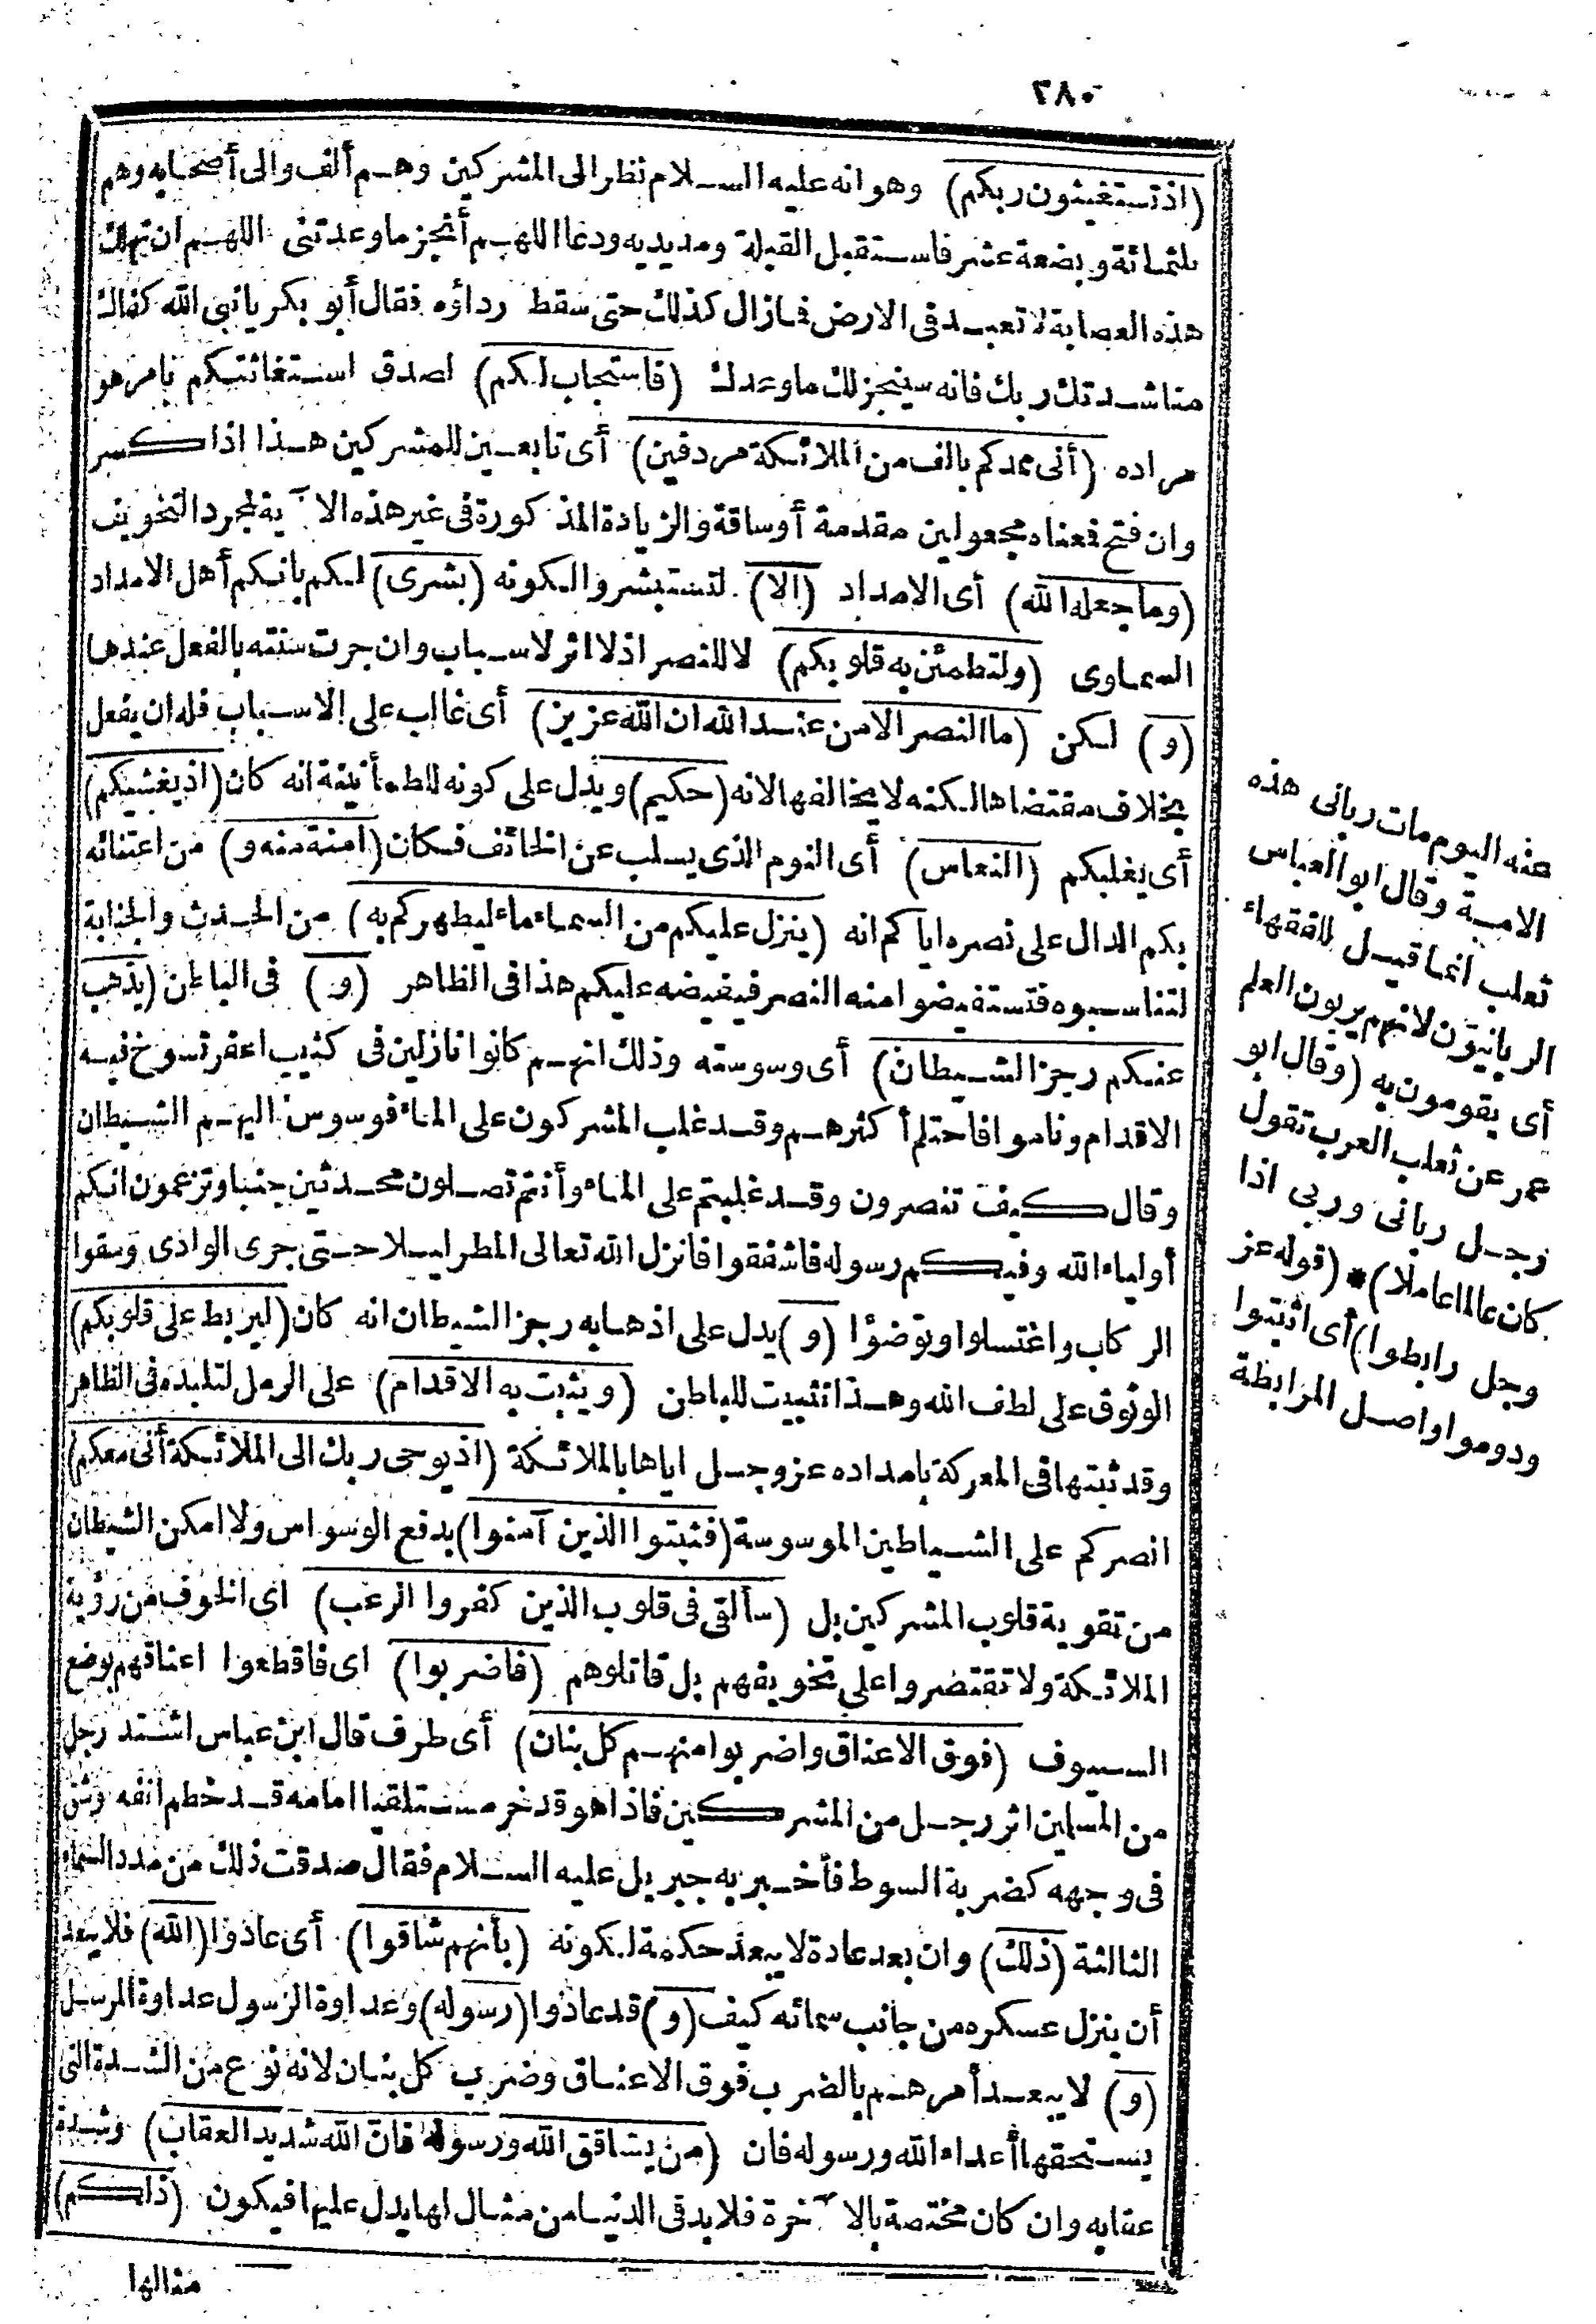 ٢٨٠
(اذ تستغيثون ربكم) وهو انه عليه السلام نظر الى المشركين وهم ألف والى أصحابه وهم
ثلثمائة وبضعة عشر فاستقبل القبلة ومد يديه ودعا اللهم أنجز ما وعدتنى اللهم ان تهلك
هذه العصابة لا تعبد فى الارض فما زال كذلك حتى سقط رداؤه فقال أبو بكر يا نبى الله كفاك
مناشدتك ربك فانه سينجز لك ما وعدك (فاستجاب لكم) لصدق استغاثتكم بامر هو
مراده (أنى ممدكم بالف من الملائكة مردفين) أى تابعين للمشركين هذا اذا كسر
وان فتح فمعناه مجعولين مقدمة أو ساقة والزيادة المذكورة فى غير هذه الآية لمجرد التخويف
(وما جعله الله) أى الامداد (الا) لتستبشروا لكونه (بشرى) لكم بانكم أهل الامداد
السماوى (ولتطمئن به قلوبكم) لا للنصر اذ لا اثر لاسباب وان جرت سنته بالفعل عندها
(و) لكن (ما النصر الا من عند الله ان الله عزيز) أى غالب على الاسباب فله ان يفعل
بخلاف مقتضاها لكنه لا يخالفها لانه (حكيم) ويدل على كونه للطمأنينة انه كان (اذ يغشيكم)
أى يغلبكم (النعاس) أى النوم الذى يسلب عن الخائف فكان (امنة منه و) من اعتنائه
بكم الدال على نصره اياكم انه (ينزل عليكم من السماء ماء ليطهركم به) من الحدث والجنابة
لتناسبوه فتستفيضوا منه النصر فيفيضه عليكم هذا فى الظاهر (و) فى الباطن (يذهب
عنكم رجز الشيطان) أى وسوسته وذلك انهم كانوا نازلين فى كثيب اعفر تسوخ فيه
الاقدام وناموا فاحتلم أكثرهم وقد غلب المشركون على الماء فوسوس اليهم الشيطان
وقال كيف تنصرون وقد غلبتم على الماء وأنتم تصلون محدثين جنبا وتزعمون انكم
أولياء الله وفيكم رسوله فاشفقوا فانزل الله تعالى المطر ليلا حتى جرى الوادى وسقوا
الركاب واغتسلوا وتوضؤا (و) يدل على اذهابه رجز الشيطان انه كان (ليربط على قلوبكم)
الوثوق على لطف الله وهذا تثبيت للباطن (ويثبت به الاقدام) على الرمل لتلبده فى الظاهر
وقد ثبتها فى المعركة بامداده عز وجل اياها بالملائكة (اذ يوحى ربك الى الملائكة أنى معكم)
انصركم على الشياطين الموسوسة (فثبتوا الذين آمنوا) بدفع الوسواس ولا امكن الشيطان
من تقوية قلوب المشركين بل (سألقى فى قلوب الذين كفروا الرعب) اى الخوف من رؤية
الملائكة ولا تقتصروا على تخويفهم بل قاتلوهم (فاضربوا) اى فاقطعوا اعناقهم بوضع
السيوف (فوق الاعناق واضربوا منهم كل بنان) أى طرف قال ابن عباس اشتد رجل
من المسلمين اثر رجل من المشركين فاذا هو قد خر مستلقيا امامه قد خطم انفه وشق
فى وجهه كضربة السوط فأخبر به جبريل عليه السلام فقال صدقت ذلك من مدد السماء
الثالثة (ذلك) وان بعد عادة لا يبعد حكمة لكونه (بأنهم شاقوا) أى عادوا (الله) فلا يبعد
أن ينزل عسكره من جانب سمائه كيف (و) قد عادوا (رسوله) وعداوة الرسول عداوة المرسل
(و) لا يبعد أمرهم بالضرب فوق الاعناق وضرب كل بنان لانه نوع من الشدة التى
يستحقها أعداء الله ورسوله فان (من يشاقق الله ورسوله فان الله شديد العقاب) وشدة
عقابه وان كان مختصة بالآخرة فلا بد فى الدنيا من مثال لها يدل عليها فيكون (ذلكم)
مثالها
عنه اليوم مات ربانى هذه
الامة وقال ابو العباس
ثعلب انما قيل للفقهاء
الربانيون لانهم يربون العلم
أى يقومون به (وقال ابو
عمر عن ثعلب العرب تقول
رجل ربانى وربى اذا
كان عالما عاملا) * (قوله عز
وجل رابطوا) أى اثبتوا
ودوموا واصل المرابطة